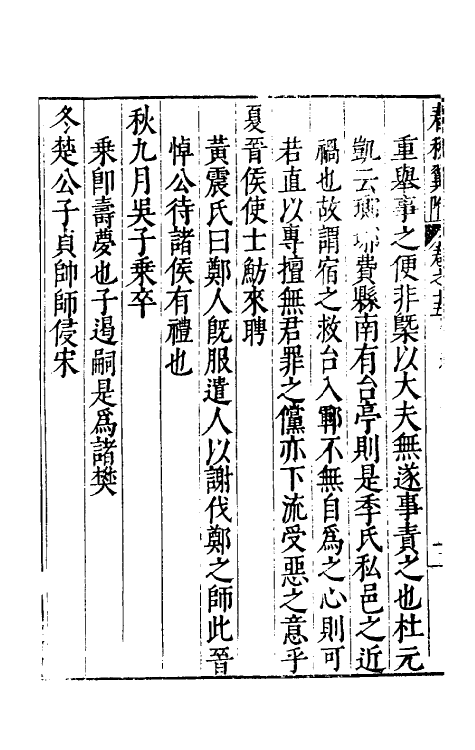 春秋
重舉事之便非槩以大夫無遂事責之也杜元
凱云琅琊費縣南有台亭則是季氏私邑之近
禍也故謂宿之救台入鄆不無自爲之心則可
若直以專擅無君罪之儻亦下流受惡之意乎
夏晉侯使士魴來聘
黃震氏曰鄭人旣服遣人以謝伐鄭之師此晉
悼公待諸侯有禮也
秋九月吳子乘卒
乘卽壽夢也子遏嗣是爲諸樊
冬楚公子貞帥師侵宋